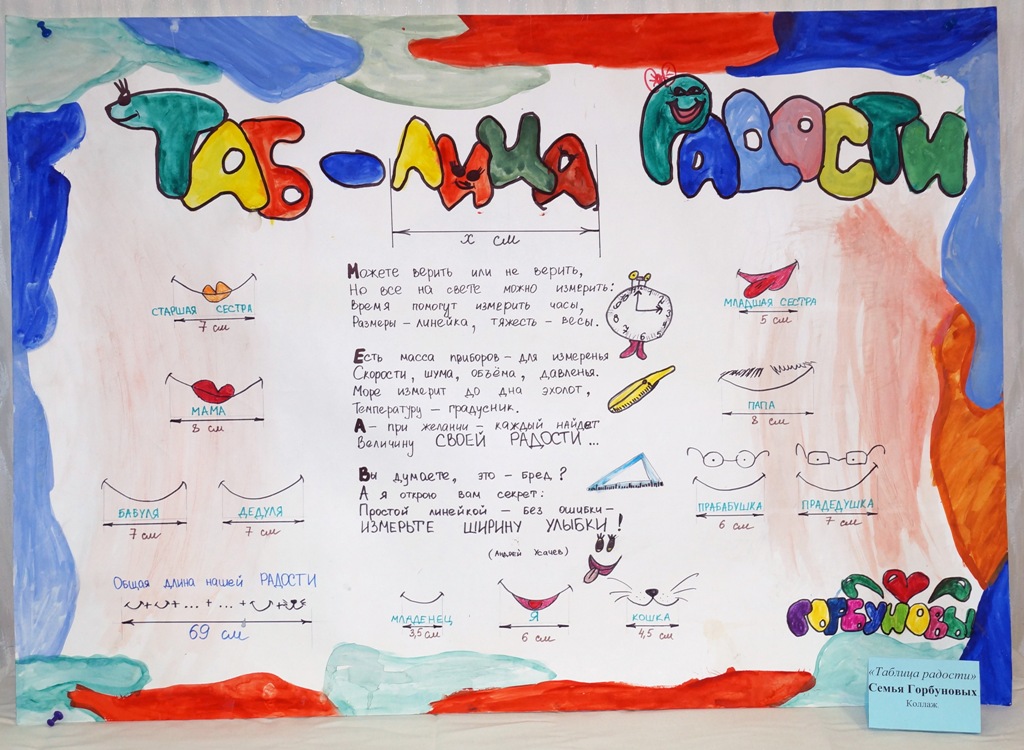 ТАБ-ЛИЦА РАДОСТИ
x см
Можете верить или не верить,
Но все на свете можно измерить:
Время помогут измерить часы,
Размеры – линейка, тяжесть – весы.
Есть масса приборов – для измеренья
Скорости, шума, объёма, давленья.
Море измерит до дна эхолот,
Температуру – градусник.
А – при желании – каждый найдет
Величину СВОЕЙ РАДОСТИ...
Вы думаете, это – бред?
А я открою вам секрет:
Простой линейкой – без ошибки –
ИЗМЕРЬТЕ ШИРИНУ УЛЫБКИ!
(Андрей Усачев)
СТАРШАЯ СЕСТРА
7 см
МАМА
8 см
БАБУЛЯ
7 см
ДЕДУЛЯ
7 см
МЛАДШАЯ СЕСТРА
5 см
ПАПА
8 см
ПРАБАБУШКА
6 см
ПРАДЕДУШКА
7 см
Общая длина нашей РАДОСТИ
+ + ... + ... + +
69 см
МЛАДЕНЕЦ
3,5 см
Я
6 см
КОШКА
4,5 см
ГОРБУНОВЫ
«Таблица радости»
Семья Горбуновых
Коллаж